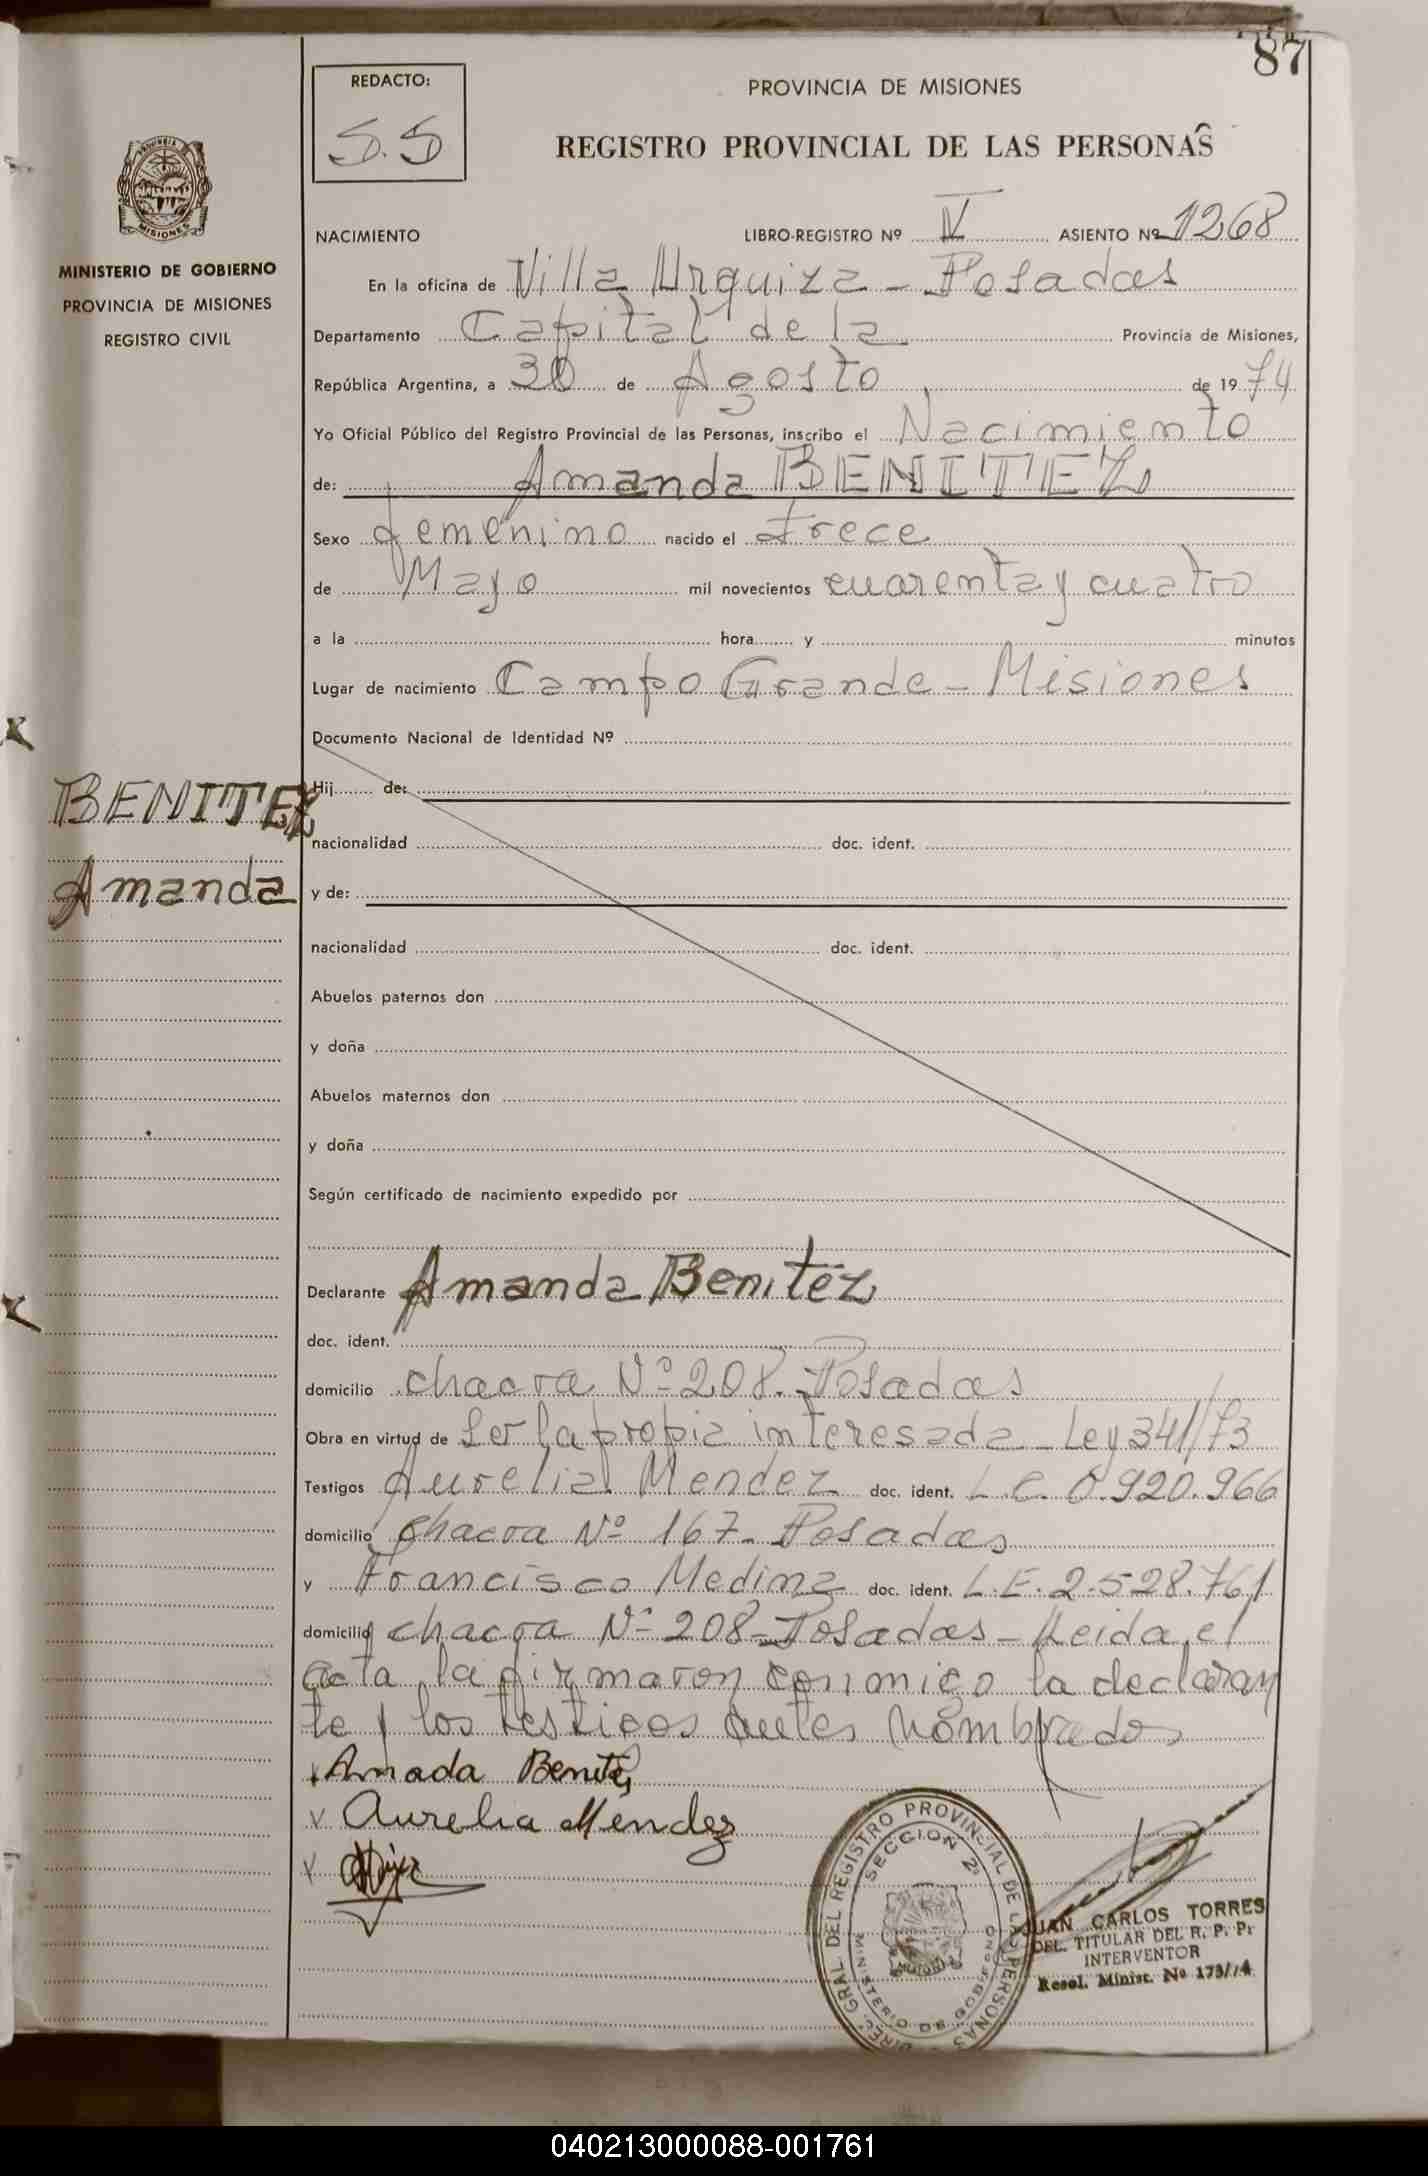 87
REDACTO:
S.S
PROVINCIA DE MISIONES
REGISTRO PROVINCIAL DE LAS PERSONAS
MINISTERIO DE GOBIERNO
PROVINCIA DE MISIONES
REGISTRO CIVIL
NACIMIENTO LIBRO-REGISTRO Nº IV ASIENTO Nº 1268
En la oficina de Villa Urquiza - Posadas
Departamento Capital de la Provincia de Misiones,
República Argentina, a 30 de Agosto de 1974
Yo Oficial Público del Registro Provincial de las Personas, inscribo el Nacimiento
de: Amanda BENITEZ
Sexo femenino nacido el trece
de Mayo mil novecientos cuarenta y cuatro
a la hora y minutos
Lugar de nacimiento Campo Grande - Misiones
Documento Nacional de Identidad Nº
BENITEZ
Amanda
Hij de:
nacionalidad doc. ident.
y de:
nacionalidad doc. ident.
Abuelos paternos don
y doña
Abuelos maternos don
y doña
Según certificado de nacimiento expedido por
Declarante Amanda Benitez
doc. ident.
domicilio chacra Nº 208. Posadas
Obra en virtud de ser la propia interesada - Ley 341/73
Testigos Aurelia Mendez doc. ident. L.C. 0.920.966
domicilio chacra Nº 167 - Posadas
y Francisco Medina doc. ident. L.E. 2.528.761
domicilio chacra Nº 208 - Posadas - Leida el
acta, la firmaron conmigo la declaran
te y los testigos antes nombrados
Amada Benitez
Aurelia Mendez
DIREC. GRAL. DEL REGISTRO PROVINCIAL DE LAS PERSONAS
SECCION 2ª
MISIONES
MINISTERIO DE GOBIERNO
JUAN CARLOS TORRES
DEL. TITULAR DEL R. P. P.
INTERVENTOR
Resol. Minist. Nº 173/74
040213000088-001761